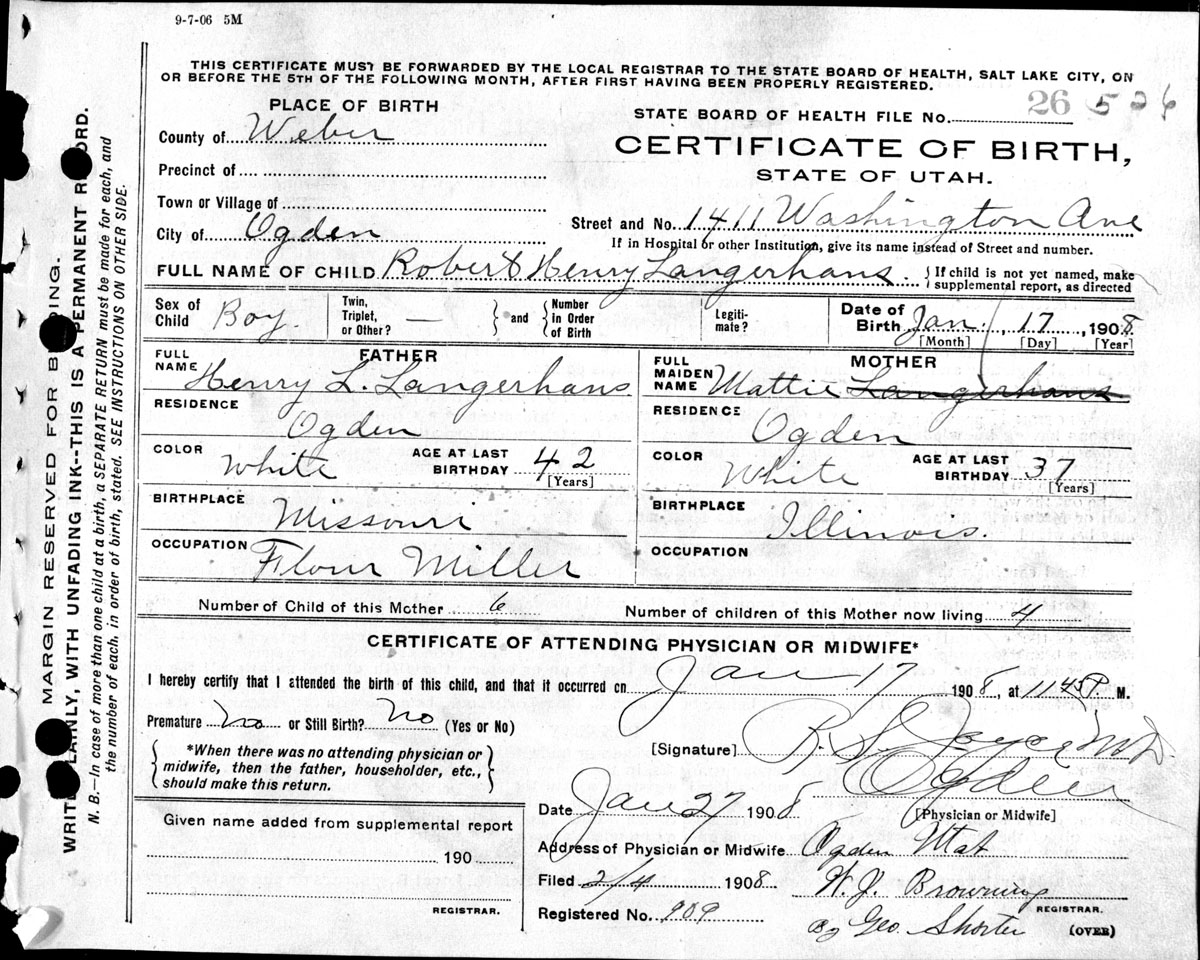 9-7-06 5M
THIS CERTIFICATE MUST BE FORWARDED BY THE LOCAL REGISTRAR TO THE STATE BOARD OF HEALTH, SALT LAKE CITY, ON
OR BEFORE THE 5TH OF THE FOLLOWING MONTH, AFTER FIRST HAVING BEEN PROPERLY REGISTERED.
PLACE OF BIRTH
County of Weber
Precinct of
Town or Village of
City of Ogden
STATE BOARD OF HEALTH FILE No. 26 526
CERTIFICATE OF BIRTH,
STATE OF UTAH.
Street and No. 1411 Washington Ave
If in Hospital or other Institution, give its name instead of Street and number.
FULL NAME OF CHILD Robert Henry Langerhans. {If child is not yet named, make
supplemental report, as directed
Sex of Child Boy. Twin, Triplet, or Other? — } and { Number in Order of Birth Legiti-mate? Date of Birth Jan, 17, 1908
[Month] [Day] [Year]
FATHER
FULL NAME Henry L. Langerhans
RESIDENCE Ogden
COLOR White AGE AT LAST BIRTHDAY 42
[Years]
BIRTHPLACE Missouri
OCCUPATION Flour Miller
MOTHER
FULL MAIDEN NAME Mattie Langerhans
RESIDENCE Ogden
COLOR White AGE AT LAST BIRTHDAY 37
[Years]
BIRTHPLACE Illinois.
OCCUPATION
Number of Child of this Mother 6 Number of children of this Mother now living 4
CERTIFICATE OF ATTENDING PHYSICIAN OR MIDWIFE*
I hereby certify that I attended the birth of this child, and that it occurred on Jan 17 1908, at 11 45 P. M.
Premature no or Still Birth? no (Yes or No)
{ *When there was no attending physician or
midwife, then the father, householder, etc.,
should make this return. }
[Signature] R. S. M.D.
Ogden
[Physician or Midwife]
Given name added from supplemental report
190
REGISTRAR.
Date Jan 27 1908
Address of Physician or Midwife Ogden Utah
Filed 2/4 1908 W. J. Browning
REGISTRAR.
Registered No. 909 By Geo. Shorter (OVER)
MARGIN RESERVED FOR BINDING.
WRITE PLAINLY, WITH UNFADING INK--THIS IS A PERMANENT RECORD.
N. B.—In case of more than one child at a birth, a SEPARATE RETURN must be made for each, and
the number of each, in order of birth, stated. SEE INSTRUCTIONS ON OTHER SIDE.